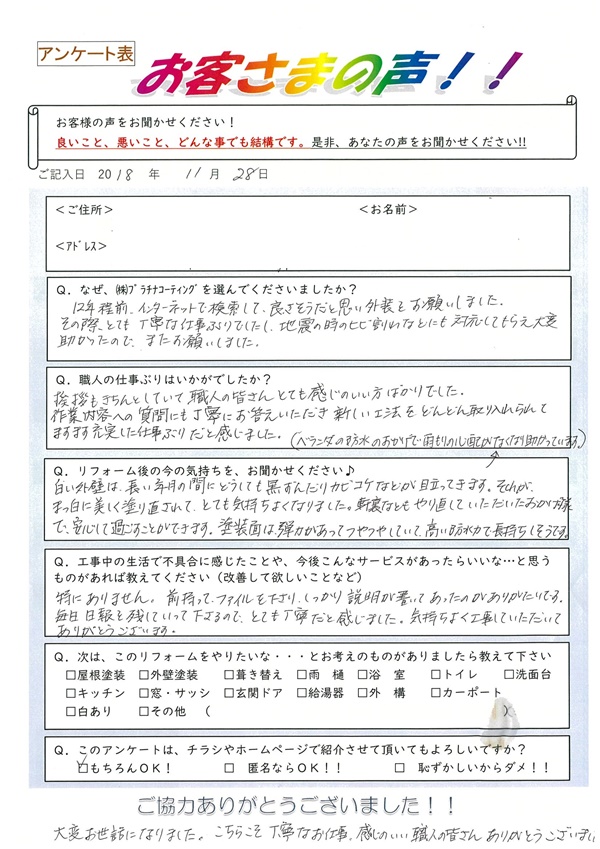 アンケート表
お客さまの声！！
お客様の声をお聞かせください！
良いこと、悪いこと、どんな事でも結構です。是非、あなたの声をお聞かせください!!
ご記入日 2018 年 11 月 28 日
＜ご住所＞ ＜お名前＞
＜ｱﾄﾞﾚｽ＞
Q．なぜ、㈱ﾌﾟﾗﾁﾅｺｰﾃｨﾝｸﾞを選んでくださいましたか？
12年程前、インターネットで検索して、良さそうだと思い外装をお願いしました。
その際、とても丁寧な仕事ぶりでしたし、地震の時のヒビ割れなどにも対応してもらえ大変
助かったので、またお願いしました。
Q．職人の仕事ぶりはいかがでしたか？
挨拶もきちんとしていて、職人の皆さんとても感じのいい方ばかりでした。
作業内容への質問にも丁寧にお答えいただき新しい工法をどんどん取り入れられて
ますます充実した仕事ぶりだと感じました。（ベランダの防水のおかげで雨もりの心配がなくなり助かっています）
Q．リフォーム後の今の気持ちを、お聞かせください♪
白い外壁は、長い年月の間にどうしても黒ずんだりカビコケなどが目立ってきます。それが、
まっ白に美しく塗り直されて、とても気持ちよくなりました。軒裏などもやり直していただいたおかげ
で、安心して過ごすことができます。塗装面は、弾力があってつやつやしていて、高い防水力で長持ちしそうです。
Q．工事中の生活で不具合に感じたことや、今後こんなサービスがあったらいいな…と思う
ものがあれば教えてください（改善して欲しいことなど）
特にありません。前持って、ファイルを下さり、しっかり説明が書いてあったのがありがたいです。
毎日日報を残していって下さるので、とても丁寧だと感じました。気持ちよく工事していただいて
ありがとうございます。
Q．次は、このリフォームをやりたいな・・・とお考えのものがありましたら教えて下さい
□屋根塗装 □外壁塗装 □葺き替え □雨 樋 □浴 室 □トイレ □洗面台
□キッチン □窓・サッシ □玄関ドア □給湯器 □外 構 □カーポート
□白あり □その他 （ ）
Q．このアンケートは、チラシやホームページで紹介させて頂いてもよろしいですか？
☑もちろんOK！ □ 匿名ならOK！！ □ 恥ずかしいからダメ！！
ご協力ありがとうございました！！
大変お世話になりました。こちらこそ丁寧なお仕事、感じのいい職人の皆さんありがとうございました